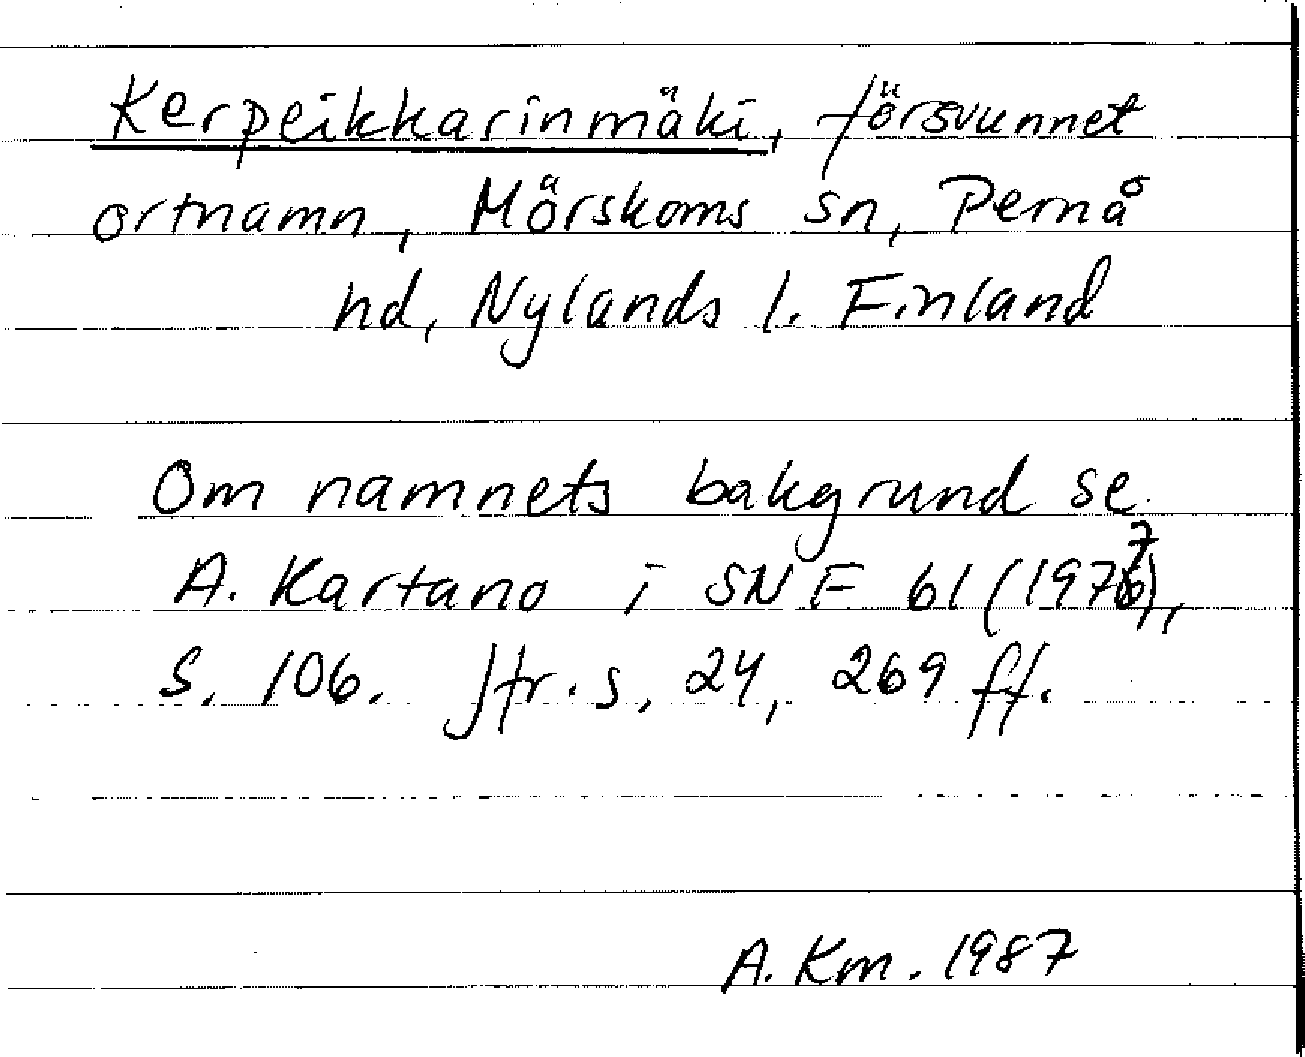 Kerpeikkarinmäki, försvunnet
ortnamn, Mörskoms sn, Pernå
hd, Nylands l. Finland
Om namnets bakgrund se
A. Kartano i SNF 61 (1977),
s. 106. Jfr. s. 24, 269 ff.
A. Km. 1987